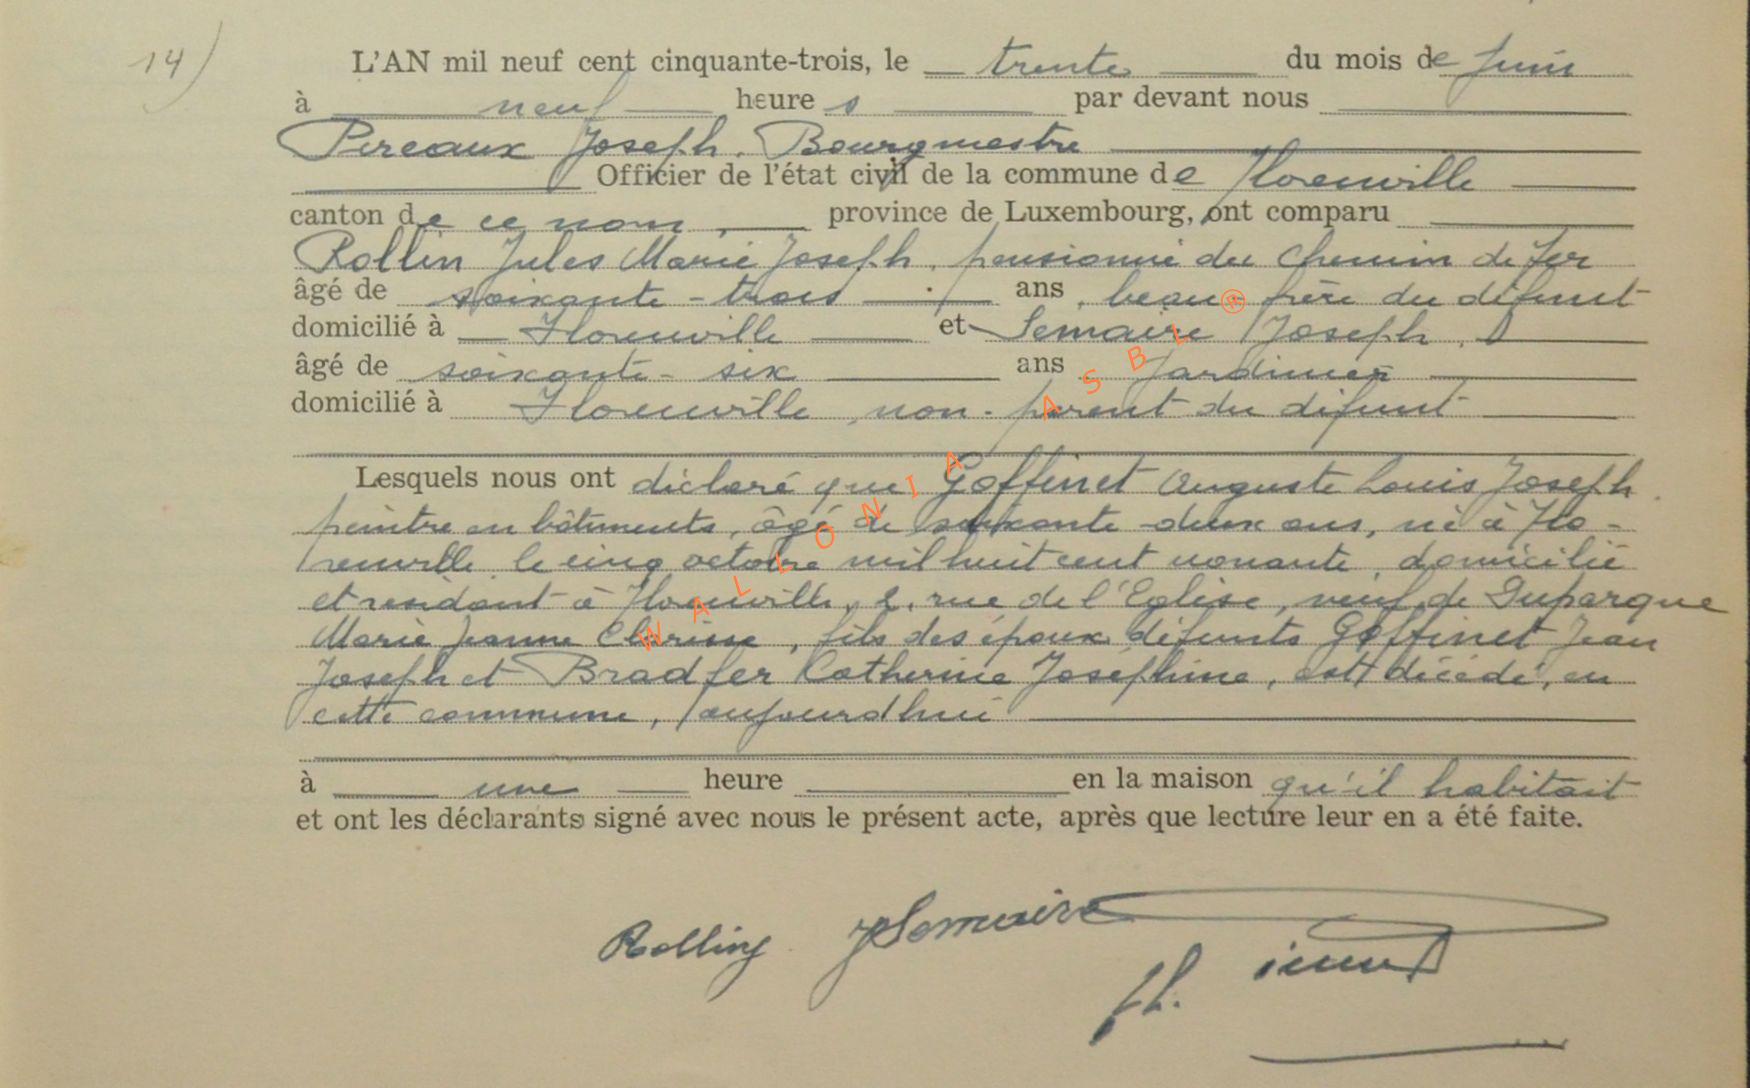 14)
L'AN mil neuf cent cinquante-trois, le trente du mois de Juin
à neuf heures par devant nous
Pireaux Joseph. Bourgmestre
Officier de l'état civil de la commune de Florenville
canton de ce nom, province de Luxembourg, ont comparu
Rollin Jules Marie Joseph, pensionné du Chemin de fer
âgé de soixante-trois ans, beau-frère du défunt
domicilié à Florenville et Lemaire Joseph,
âgé de soixante-six ans Jardinier
domicilié à Florenville, non-parent du défunt
Lesquels nous ont déclaré que Goffinet Auguste Louis Joseph
peintre en bâtiments, âgé de soixante-deux ans, né à Flo-
renville le cinq octobre mil huit cent nonante, domicilié
et résidant à Florenville, 2, rue de l'Eglise, veuf de Duparque
Marie Jeanne Clarisse, fils des époux défunts Goffinet Jean
Joseph et Bradfer Catherine Joséphine, est décédé, en
cette commune, aujourd'hui
à une heure en la maison qu'il habitait
et ont les déclarants signé avec nous le présent acte, après que lecture leur en a été faite.
Rollin JLemaire
WALLONIA ASBL ®